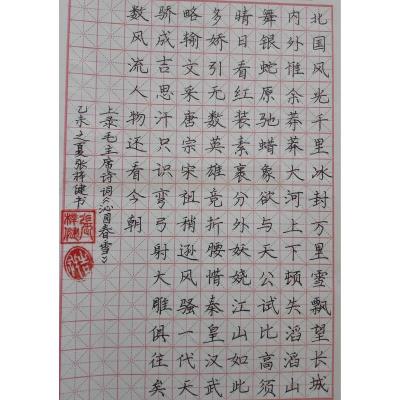 北国风光千里冰封万里雪飘望长城
内外惟余莽莽大河上下顿失滔滔山
舞银蛇原驰蜡象欲与天公试比高须
晴日看红装素裹分外妖娆江山如此
多娇引无数英雄竞折腰惜秦皇汉武
略输文采唐宗宋祖稍逊风骚一代天
骄成吉思汗只识弯弓射大雕俱往矣
数风流人物还看今朝
上录毛主席诗词《沁园春雪》
乙未之夏张梓健书